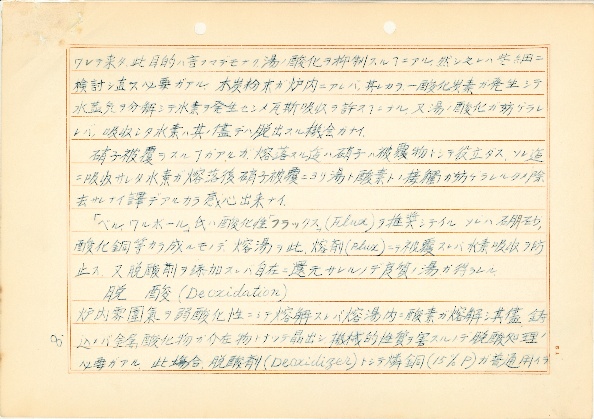 ワレテ来タ。此目的ハ言フマデモナク湯ノ酸化ヲ抑制スルニアル。然シ之レハ些細ニ
検討シ直スベキ必要ガアル。木炭粉末ガ炉内ニアレバ、其レカラ一酸化炭素ガ発生シテ
水蒸気ヲ分解シテ水素ヲ発生セシメ瓦斯吸収ヲ許スコトニナル。又湯ノ酸化ガ妨ゲラレ
レバ、吸収シタ水素ハ其儘デハ脱出スル機会ガナイ。
硝子被覆ヲスルコトガアルガ、熔落スル迄ハ硝子ハ被覆物トシテ役立タズ、ソレ迄
ニ吸収サレタ水素ガ熔落後硝子被覆ニヨリ湯ト酸素トノ接触ガ妨ゲラレルタメ除
去サレナイ譯デアルカラ感心出来ナイ。
「ベル、ウルボール」氏ハ酸化性「フラックス」(Flux)ヲ推奨シテイル ソレハ硼砂、
酸化銅等カラ成ルモノデ、熔湯ヲ此ノ熔剤(Flux)ニテ被覆スレバ水素吸収ヲ防
止ス。又脱酸剤ヲ添加スレバ自在ニ還元サレルノデ良質ノ湯ガ得ラレル
脱 酸 (Deoxidation)
炉内雰囲気ヲ弱酸化性ニシテ熔解スレバ熔湯内ニ酸素ガ熔解シ其儘 鋳
込メバ金属酸化物ガ介在物トナツテ晶出シ機械的性質ヲ害スルノデ脱酸処理ノ
必要ガアル。此場合、脱酸剤(Deoxidizer)トシテ燐銅(15% P)ガ普通用イラ
8